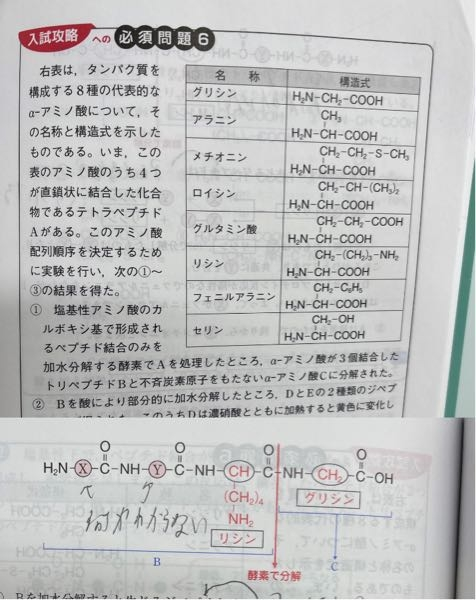 入試攻略 への 必須問題 6
右表は，タンパク質を
構成する8種の代表的な
α-アミノ酸について，そ
の名称と構造式を示した
ものである。いま，この
表のアミノ酸のうち4つ
が直鎖状に結合した化合
物であるテトラペプチド
Aがある。このアミノ酸
配列順序を決定するため
に実験を行い，次の①〜
③の結果を得た。
① 塩基性アミノ酸のカ
ルボキシ基で形成され
るペプチド結合のみを
加水分解する酵素でAを処理したところ，α-アミノ酸が3個結合した
トリペプチドBと不斉炭素原子をもたないα-アミノ酸Cに分解された。
② Bを酸により部分的に加水分解したところ，DとEの2種類のジペプ
このうちDは濃硝酸とともに加熱すると黄色に変化し
名称 構造式
グリシン H₂N-CH₂-COOH
アラニン CH₃
H₂N-CH-COOH
メチオニン CH₂-CH₂-S-CH₃
H₂N-CH-COOH
ロイシン CH₂-CH-(CH₃)₂
H₂N-CH-COOH
グルタミン酸 CH₂-CH₂-COOH
H₂N-CH-COOH
リシン CH₂-(CH₂)₃-NH₂
H₂N-CH-COOH
フェニルアラニン CH₂-C₆H₅
H₂N-CH-COOH
セリン CH₂-OH
H₂N-CH-COOH
O O O O
H₂N-X-C-NH-Y-C-NH-CH-C-NH-CH₂-C-OH
(CH₂)₄ グリシン
NH₂
何かわからない
リシン
B C
酵素で分解